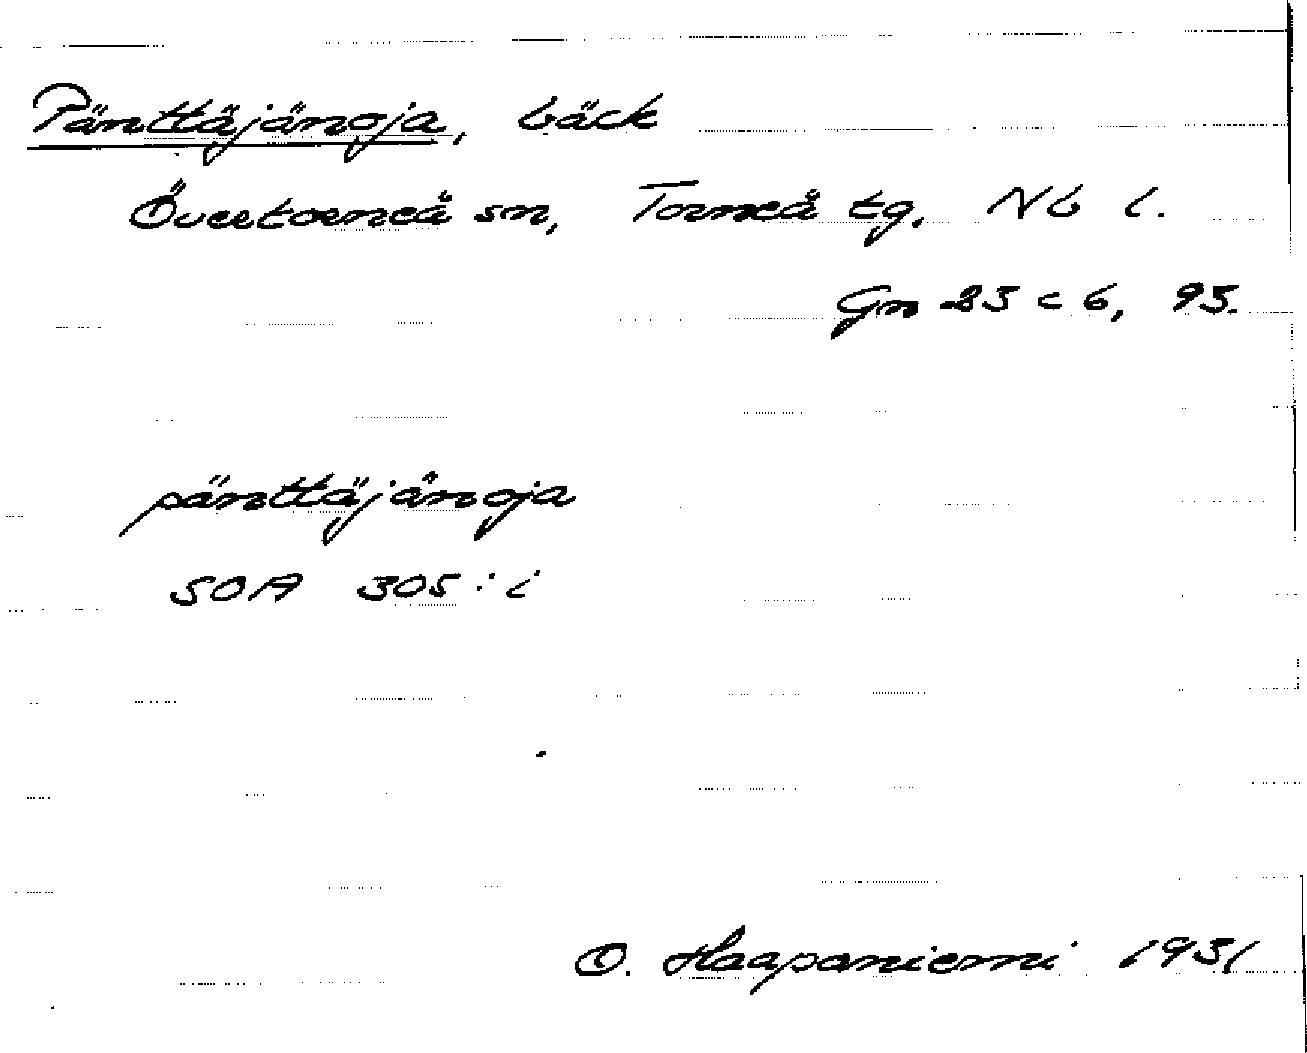 Pänttäjänoja, bäck
Övertorneå sn, Torneå tg, Nb l.
Gn 25 c 6, 95.
pänttäjänoja
SOA 305:i
O. Haapaniemi 1931